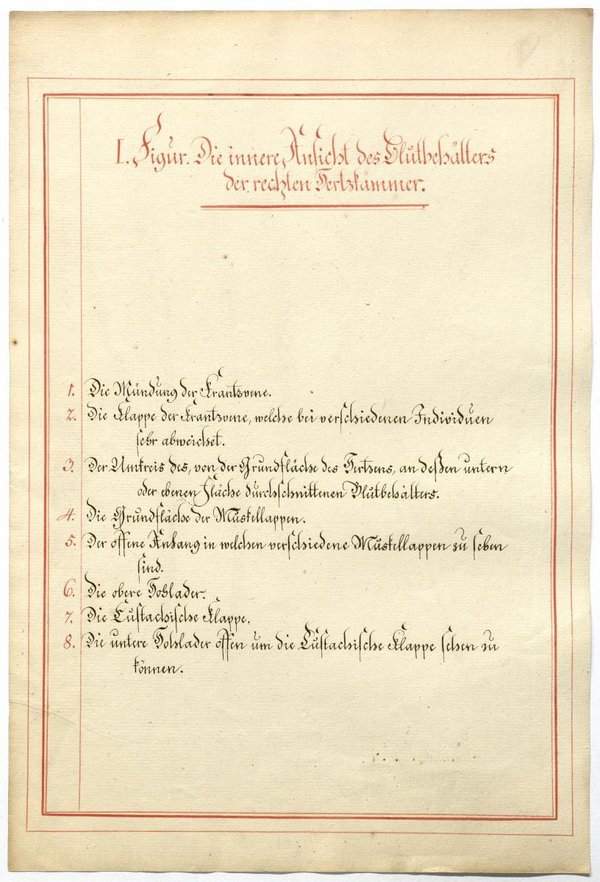 I. Figur. Die innere Ansicht des Blutbehälters
der rechten Hertzkammer.
1. Die Mündung der Krantzvene.
2. Die Klappe der Krantzvene, welche bei verschiedenen Individuen
sehr abweichet.
3. Der Umkreis des, von der Grundfläche des Hertzens, an deßen untern
oder ebenen Fläche durchschnittenen Blutbehälters.
4. Die Grundfläche der Muskellappen.
5. Der offene Anhang in welchen verschiedene Muskellappen zu sehen
sind.
6. Die obere Hohlader.
7. Die Eustachische Klappe.
8. Die untere Hohlader offen um die Eustachische Klappe sehen zu
können.